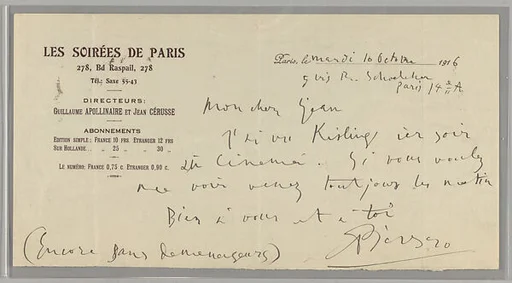 LES SOIRÉES DE PARIS
278, Bd Raspail, 278
Tél.: Saxe 55-43
DIRECTEURS:
GUILLAUME APOLLINAIRE ET JEAN CÉRUSSE
ABONNEMENTS
EDITION SIMPLE: FRANCE 10 FRS. ETRANGER 12 FRS
SUR HOLLANDE.. „ 25 „ 30 „
LE NUMÉRO: FRANCE 0,75 C. ETRANGER 0,90 C.
Paris, le mardi 10 Octobre 1916
Paris 14
Mon cher
J'ai vu Kisling ier soir
au Cinema. Si vous voulez
me voir venez toutjours les matin
Bien a vous et a toi
Picasso
(Encore pans demenageurs)